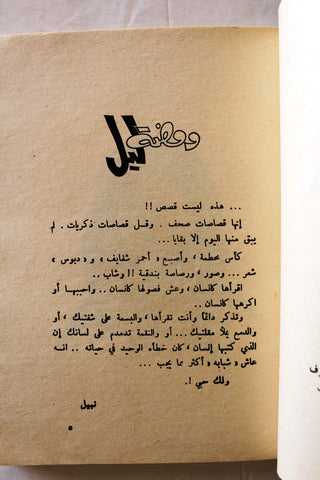 وومضة ليل
... هذه ليست قصص !!
إنها قصاصات صحف . وقسل قصاصات ذكريات . لم
يبق منها اليوم إلا بقايا ...
كأس محطمة ، وأصبع « أحمر شفايف » و « دبوس »
شعر ... وصور ، ورصاصة بندقية !! وشاب ..
اقرأها كانسان ، وعش فصولها كانسان .. واحببها أو
اكرهها كانسان ..
وتذكر دائماً وأنت تقرأها ، والبسمة على شفتيك ، أو
والدمع يملأ مقلتيك ... أو والنقمة تدمدم على لسانك إن
الذي كتبها إنسان ، كان خطأه الوحيد في حياته .. انسه
عاش « شبابه » أكثر مما يجب ...
ولك حبي !.
نبيل
٥